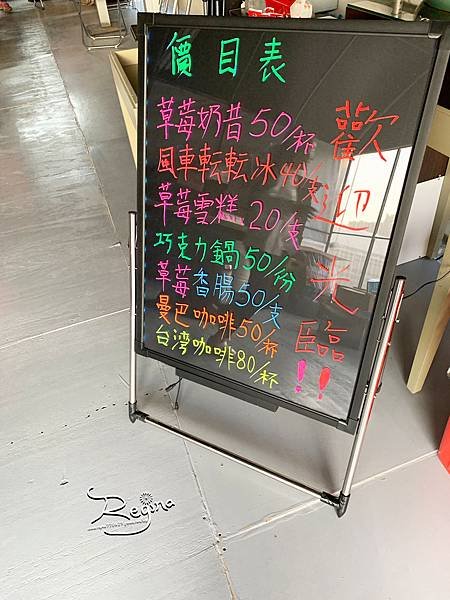 價目表
草莓奶昔50/杯
風車転転冰40/支
草莓雪糕20/支
巧克力鍋50/份
草莓香腸50/支
曼巴咖啡50/杯
台湾咖啡80/杯
歡迎光臨!!
Regina